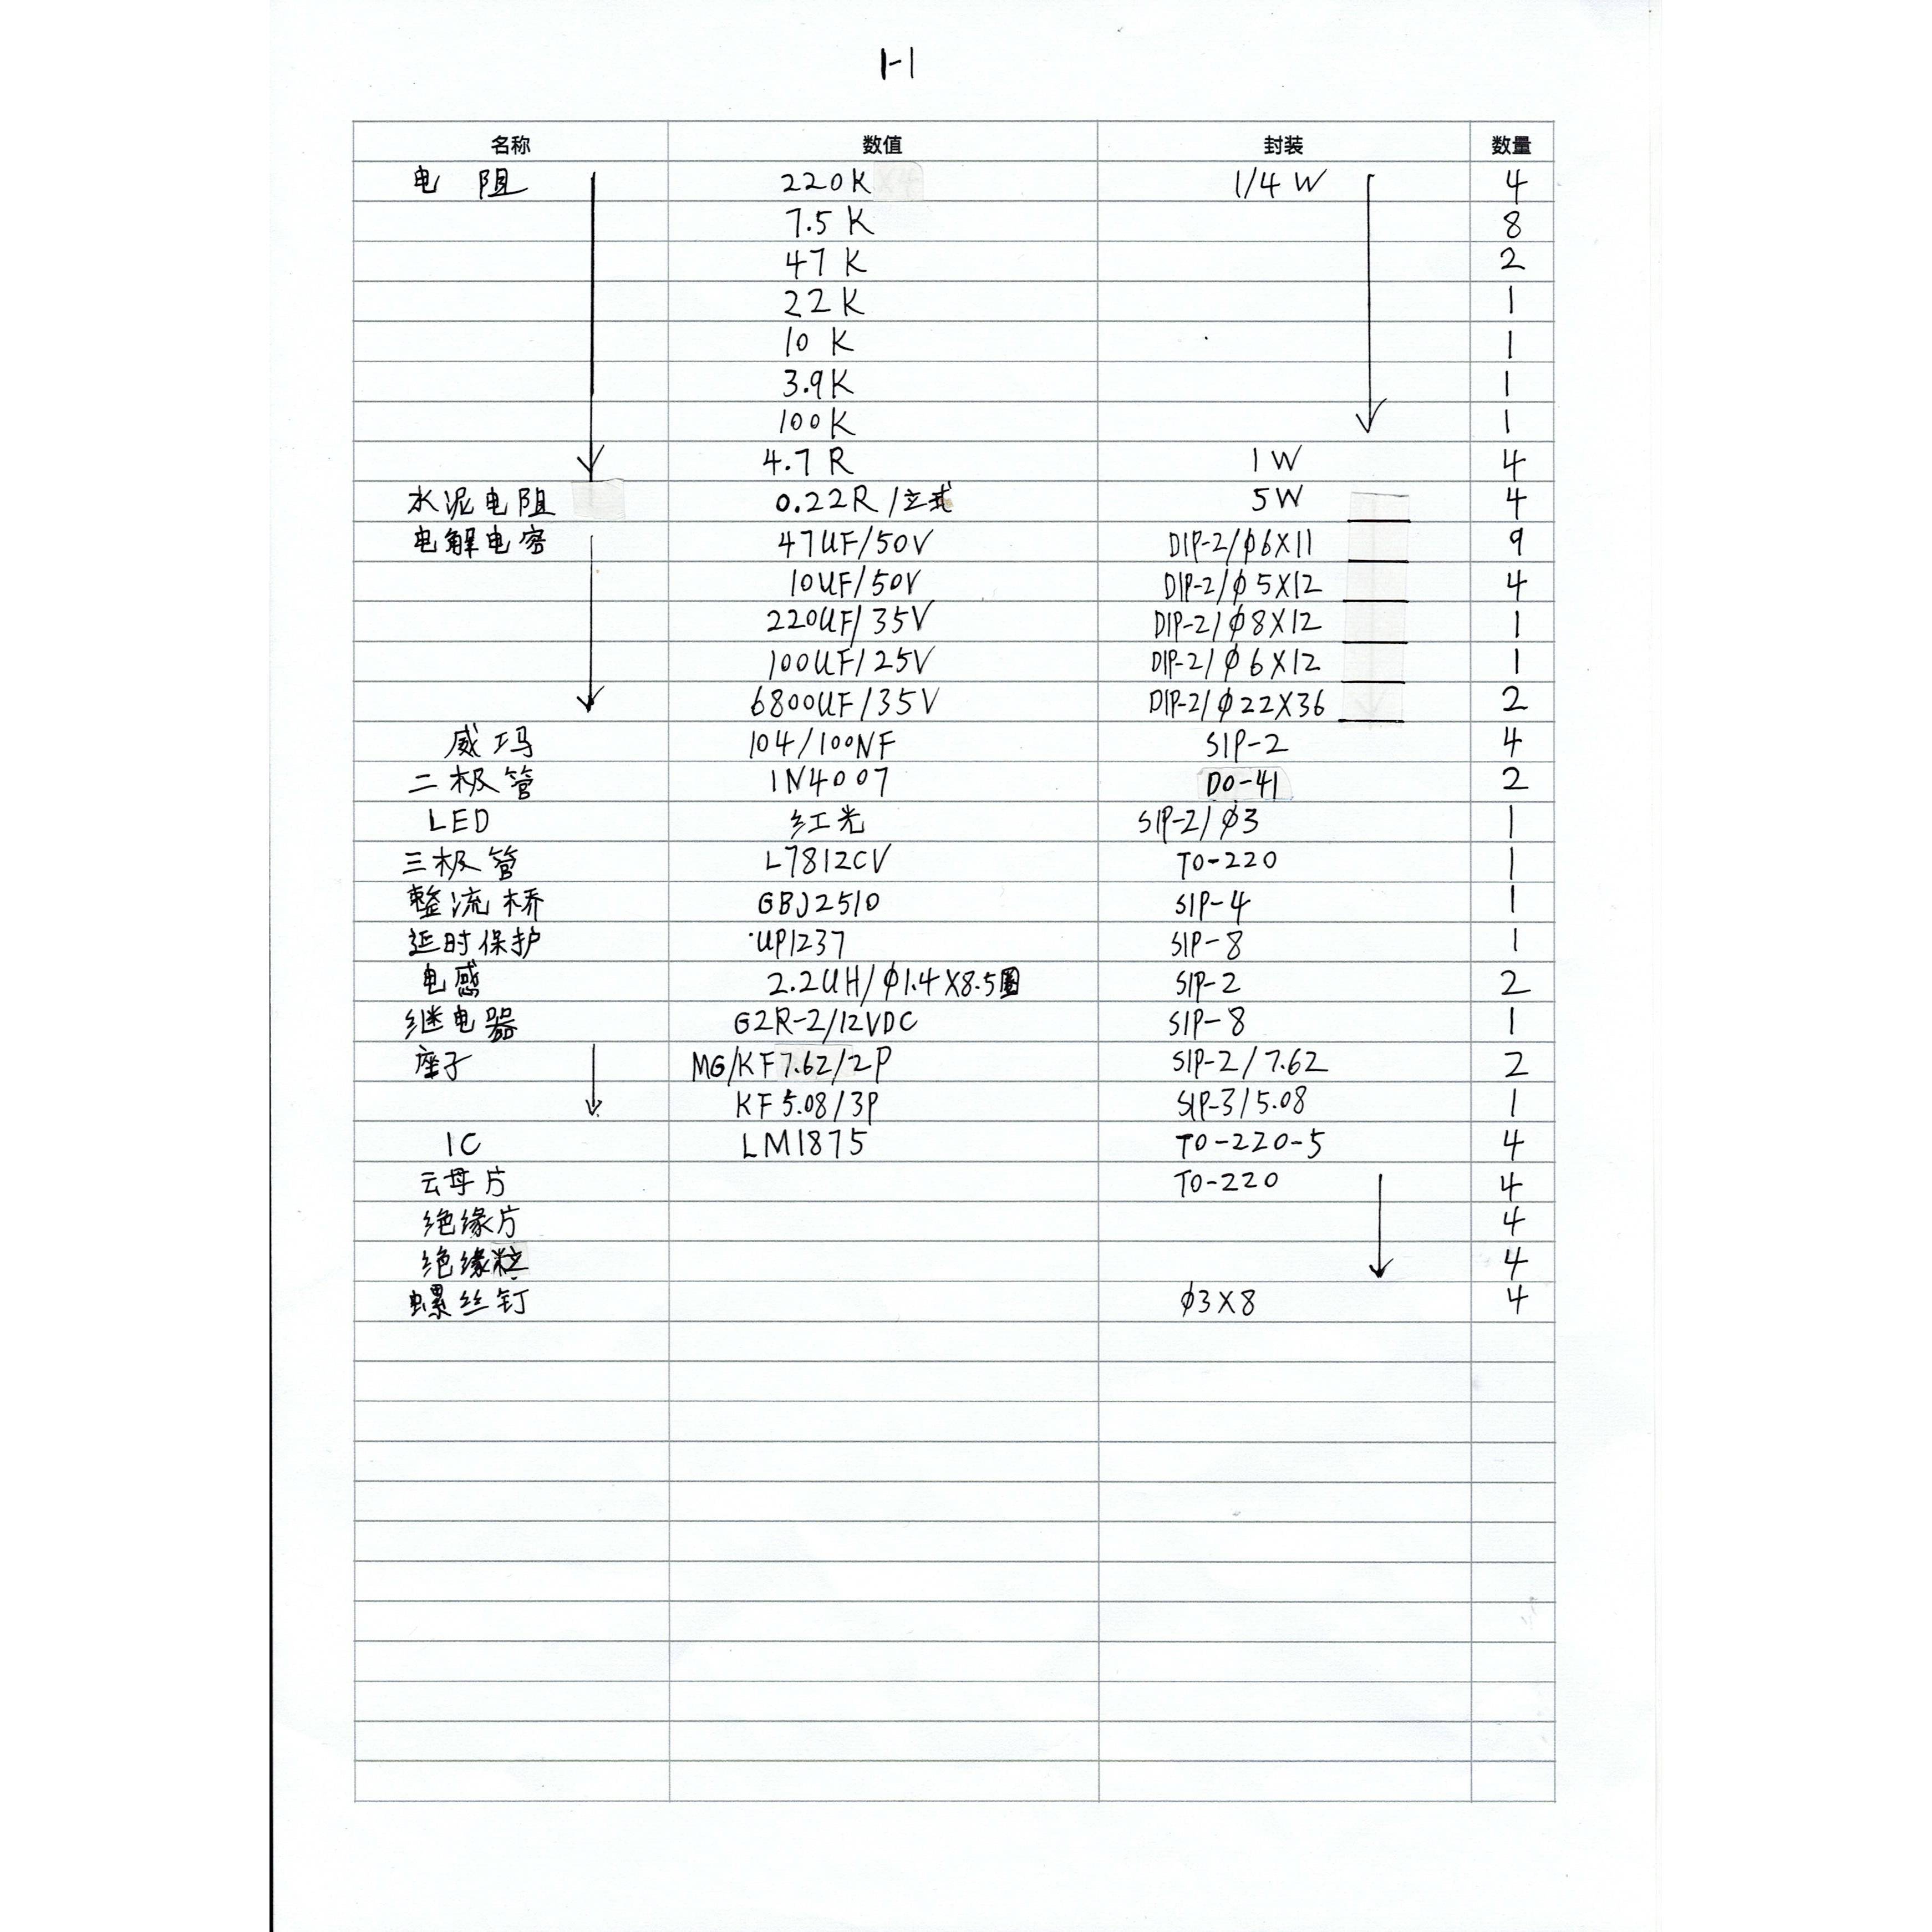 1-1
名称 数值 封装 数量
电阻 220K 1/4W 4
7.5K 8
47K 2
22K 1
10K 1
3.9K 1
100K 1
4.7R 1W 4
水泥电阻 0.22R/立式 5W 4
电解电容 47UF/50V DIP-2/φ6X11 9
10UF/50V DIP-2/φ5X12 4
220UF/35V DIP-2/φ8X12 1
100UF/25V DIP-2/φ6X12 1
6800UF/35V DIP-2/φ22X36 2
威玛 104/100NF SIP-2 4
二极管 1N4007 DO-41 2
LED 红光 SIP-2/φ3 1
三极管 L7812CV TO-220 1
整流桥 GBJ2510 SIP-4 1
延时保护 UP1237 SIP-8 1
电感 2.2UH/φ1.4X8.5圈 SIP-2 2
继电器 G2R-2/12VDC SIP-8 1
座子 MG/KF7.62/2P SIP-2/7.62 2
KF5.08/3P SIP-3/5.08 1
IC LM1875 TO-220-5 4
云母片 TO-220 4
绝缘片 4
绝缘粒 4
螺丝钉 φ3X8 4